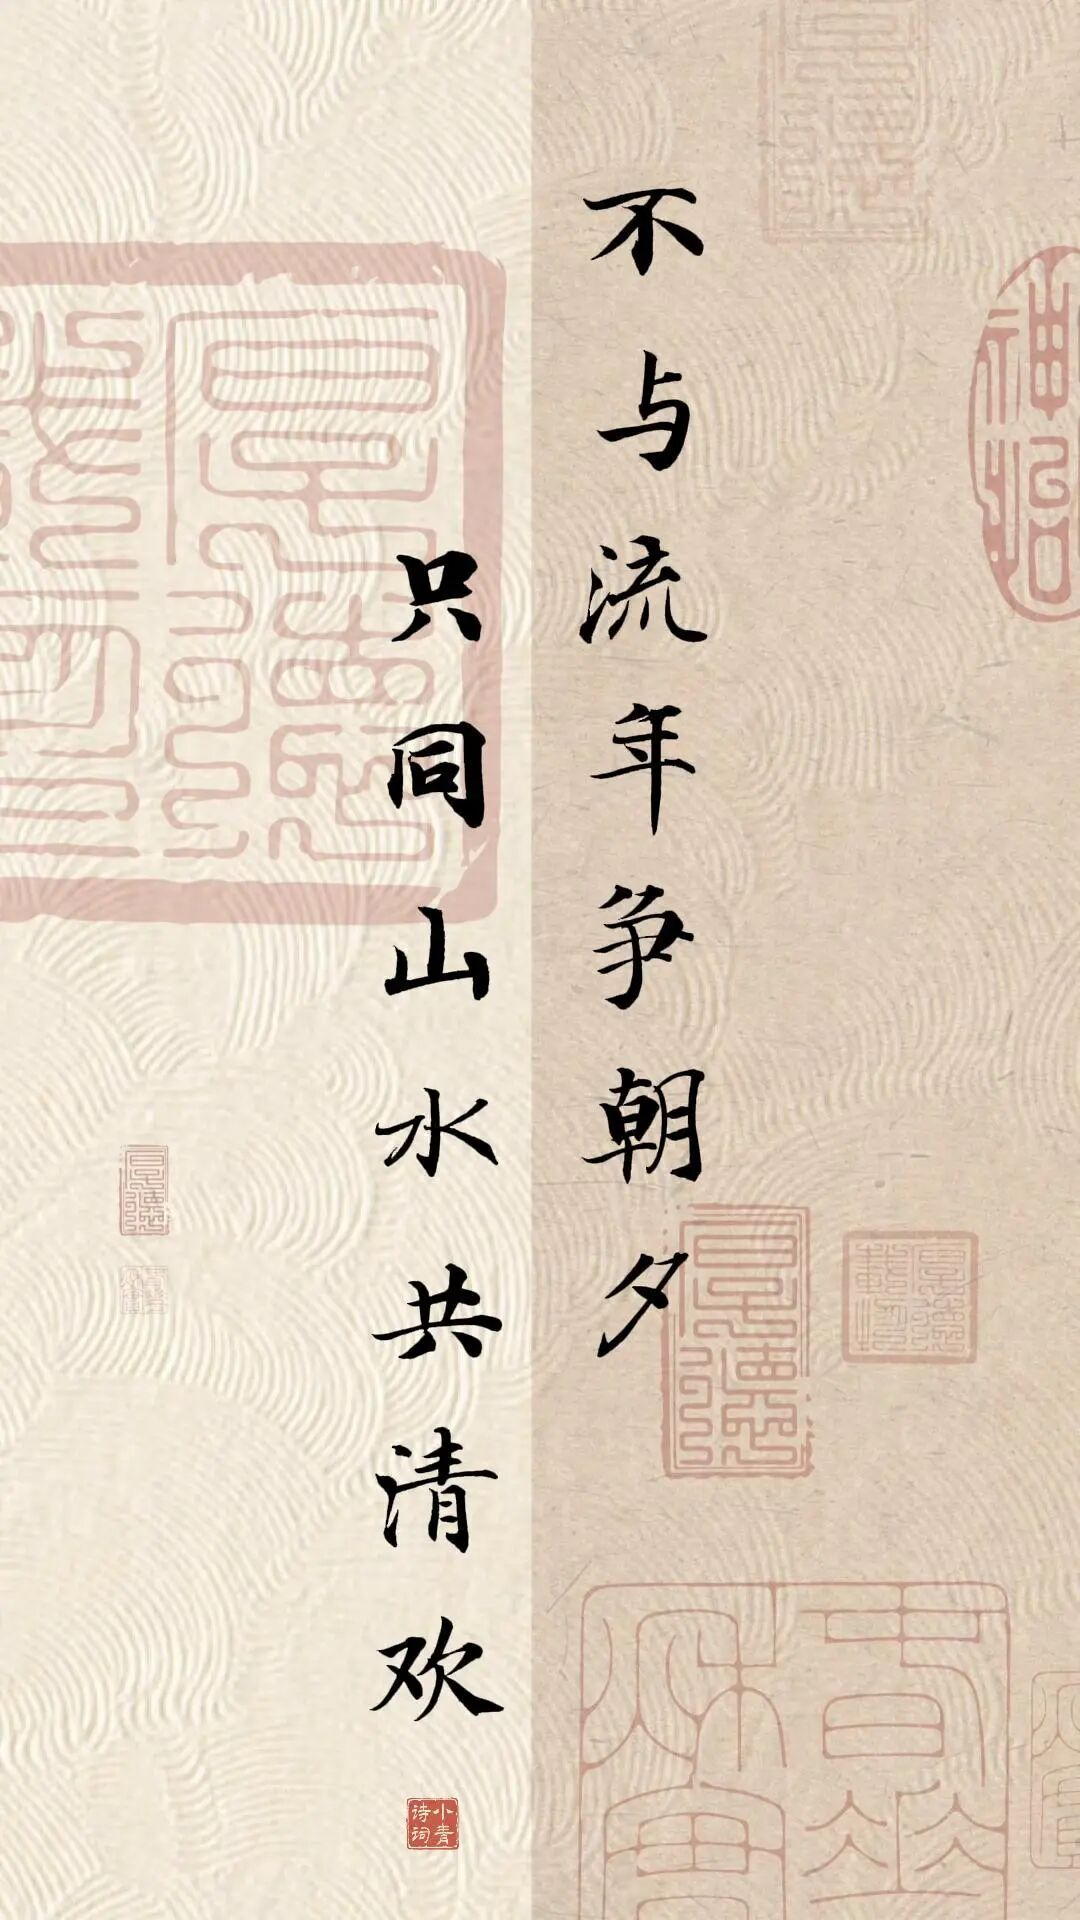 不与流年争朝夕
只同山水共清欢
小青
诗词
神怡